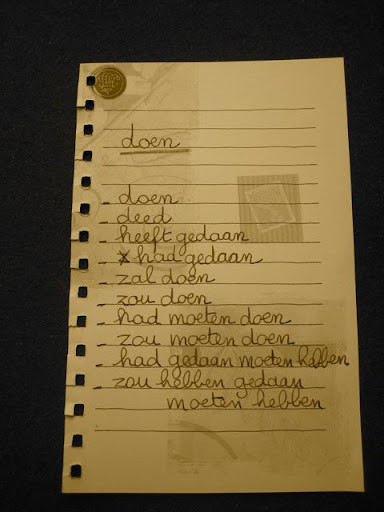 doen
- doen
- deed
- heeft gedaan
* had gedaan
- zal doen
- zou doen
- had moeten doen
- zou moeten doen
- had gedaan moeten hebben
- zou hebben gedaan
moeten hebben